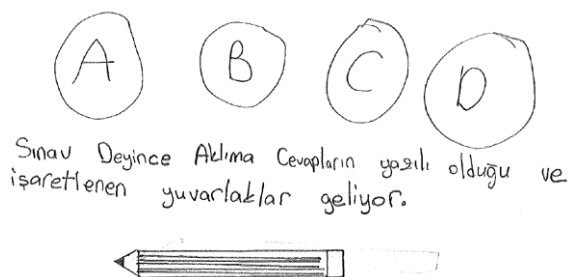 A B C D
Sınav Deyince Aklıma Cevapların yazılı olduğu ve
işaretlenen yuvarlaklar geliyor.